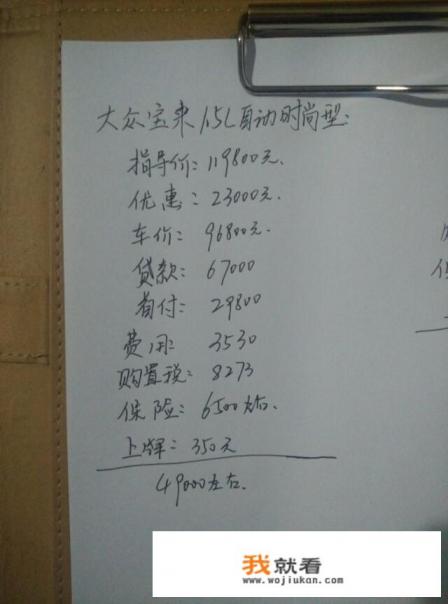 大众宝来1.5L自动时尚型.
指导价: 119800元.
优惠: 23000元.
车价: 96800元.
贷款: 67000
首付: 29800
费用: 3530
购置税: 8273
保险: 6500左右.
上牌: 350元
49000左右.
保
我就看
www.wojiukan.com